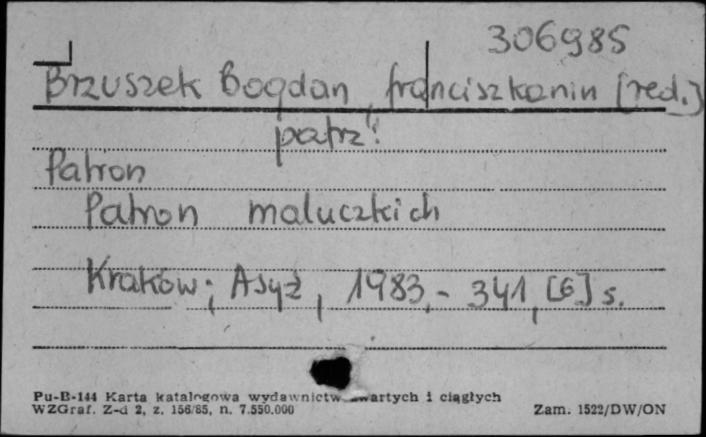 306985
Brzuszek Bogdan, franciszkanin [red.]
patrz:
Patron
Patron maluczkich
Kraków; Asyż, 1983.- 341, [6] s.
Pu-B-144 Karta katalogowa wydawnictw zwartych i ciągłych
WZGraf. Z-d 2, z. 156/85, n. 7.550.000
Zam. 1522/DW/ON